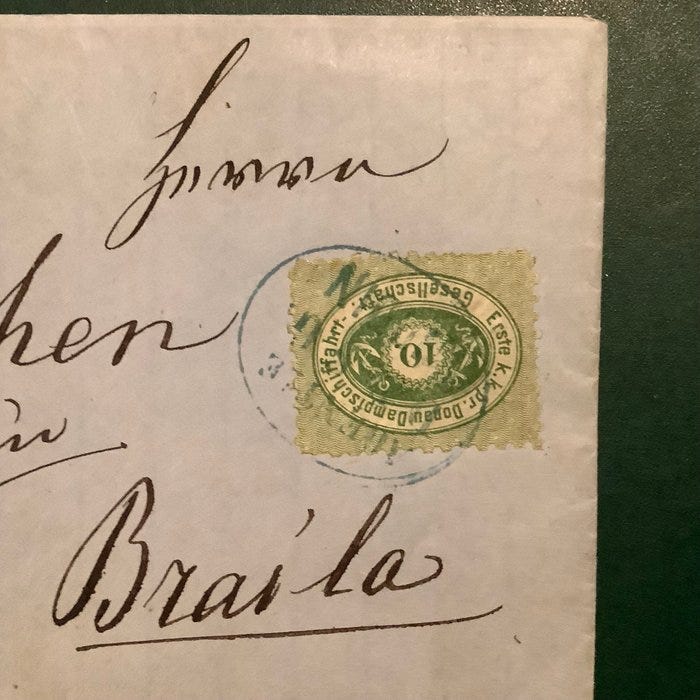 Herrn
hen
Braila
Erste k. k. pr. Donau Dampfschiffahrt-
Gesellschaft.
10